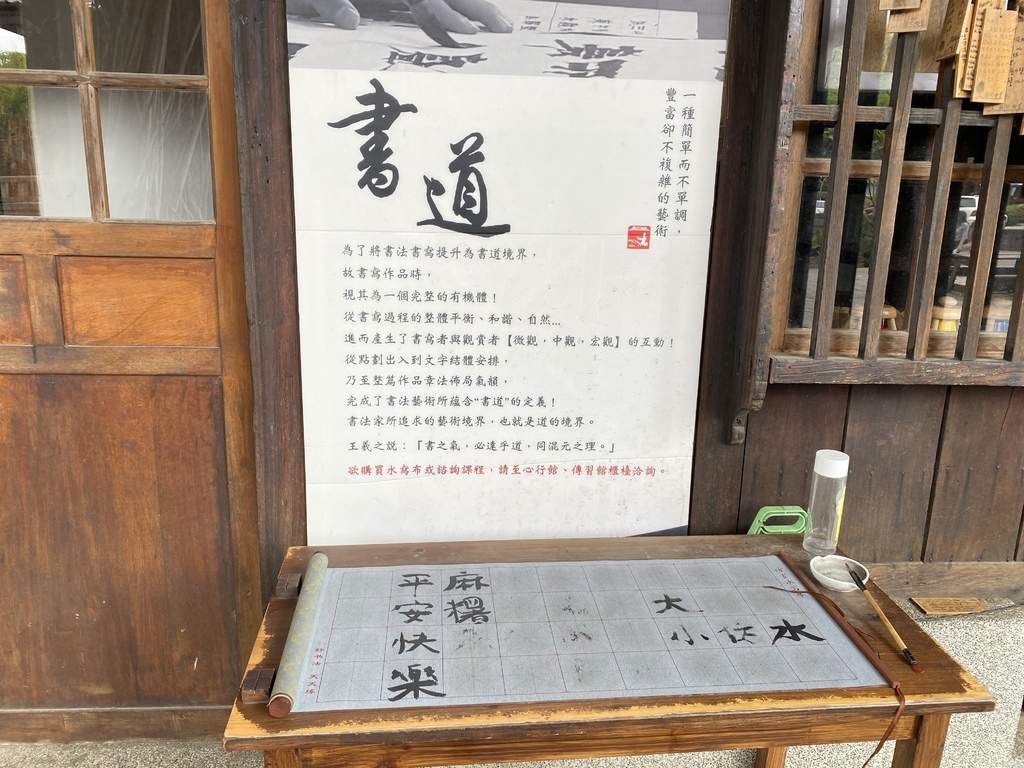 書道
一種簡單而不單調，
豐富卻不複雜的藝術
為了將書法書寫提升為書道境界，
故書寫作品時，
視其為一個完整的有機體！
從書寫過程的整體平衡、和諧、自然...
進而產生了書寫者與觀賞者【微觀，中觀，宏觀】的互動！
從點劃出入到文字結體安排，
乃至整篇作品章法佈局氣韻，
完成了書法藝術所蘊含“書道”的定義！
書法家所追求的藝術境界，也就是道的境界。
王羲之説：「書之氣，必達乎道，同混元之理。」
欲購買水寫布或諮詢課程，請至心行館、傳習館櫃檯洽詢。
水
大小
麻糬
平安快樂
好书法 天天练